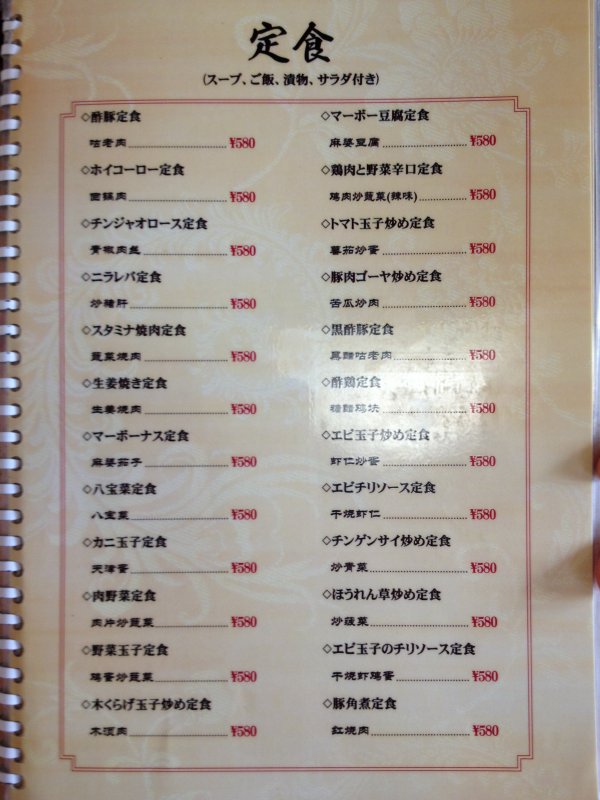 定食
(スープ、ご飯、漬物、サラダ付き)
◇酢豚定食
咕老肉 ¥580
◇ホイコーロー定食
回鍋肉 ¥580
◇チンジャオロース定食
青椒肉丝 ¥580
◇ニラレバ定食
炒猪肝 ¥580
◇スタミナ焼肉定食
蔬菜焼肉 ¥580
◇生姜焼き定食
生姜焼肉 ¥580
◇マーボーナス定食
麻婆茄子 ¥580
◇八宝菜定食
八宝菜 ¥580
◇カニ玉子定食
天津蛋 ¥580
◇肉野菜定食
肉片炒蔬菜 ¥580
◇野菜玉子定食
鶏蛋炒蔬菜 ¥580
◇木くらげ玉子炒め定食
木须肉 ¥580
◇マーボー豆腐定食
麻婆豆腐 ¥580
◇鶏肉と野菜辛口定食
鶏肉炒蔬菜(辣味) ¥580
◇トマト玉子炒め定食
蕃茄炒蛋 ¥580
◇豚肉ゴーヤ炒め定食
苦瓜炒肉 ¥580
◇黒酢豚定食
黒醋咕老肉 ¥580
◇酢鶏定食
糖醋鶏块 ¥580
◇エビ玉子炒め定食
虾仁炒蛋 ¥580
◇エビチリソース定食
干焼虾仁 ¥580
◇チンゲンサイ炒め定食
炒青菜 ¥580
◇ほうれん草炒め定食
炒菠菜 ¥580
◇エビ玉子のチリソース定食
干焼虾鶏蛋 ¥580
◇豚角煮定食
紅焼肉 ¥580